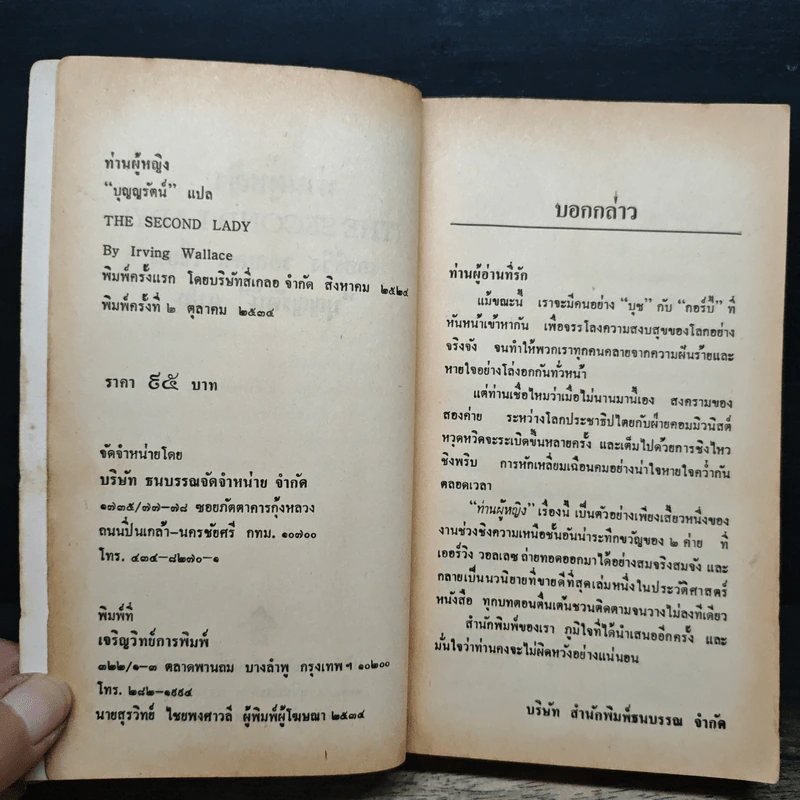 ท่านผู้หญิง
"บุญญรัตน์" แปล
THE SECOND LADY
By Irving Wallace
พิมพ์ครั้งแรก โดยบริษัทสี่เกลอ จำกัด สิงหาคม ๒๕๒๔
พิมพ์ครั้งที่ ๒ ตุลาคม ๒๕๓๔
ราคา ๙๕ บาท
จัดจำหน่ายโดย
บริษัท ธนบรรณจัดจำหน่าย จำกัด
๑๗๓๕/๗๗-๗๘ ซอยภัตตาคารกุ้งหลวง
ถนนปิ่นเกล้า-นครชัยศรี กทม. ๑๐๗๐๐
โทร. ๔๓๔-๘๒๗๐-๑
พิมพ์ที่
เจริญวิทย์การพิมพ์
๓๒๒/๑-๓ ตลาดพานถม บางลำพู กรุงเทพฯ ๑๐๒๐๐
โทร. ๒๘๒-๑๙๙๔
นายสุรวิทย์ ไชยพงศาวลี ผู้พิมพ์ผู้โฆษณา ๒๕๓๔
บอกกล่าว
ท่านผู้อ่านที่รัก
แม้ขณะนี้ เราจะมีคนอย่าง "บุช" กับ "กอร์บี้" ที่
หันหน้าเข้าหากัน เพื่อจรรโลงความสงบสุขของโลกอย่าง
จริงจัง จนทำให้พวกเราทุกคนคลายจากความฝันร้ายและ
หายใจอย่างโล่งอกกันทั่วหน้า
แต่ท่านเชื่อไหมว่าเมื่อไม่นานมานี้เอง สงครามของ
สองค่าย ระหว่างโลกประชาธิปไตยกับฝ่ายคอมมิวนิสต์
หวุดหวิดจะระเบิดขึ้นหลายครั้ง และเต็มไปด้วยการชิงไหว
ชิงพริบ การหักเหลี่ยมเฉือนคมอย่างน่าใจหายใจคว่ำกัน
ตลอดเวลา
"ท่านผู้หญิง" เรื่องนี้ เป็นตัวอย่างเพียงเสี้ยวหนึ่งของ
งานช่วงชิงความเหนือชั้นอันน่าระทึกขวัญของ ๒ ค่าย ที่
เออร์วิง วอลเลซ ถ่ายทอดออกมาได้อย่างสมจริงสมจัง และ
กลายเป็นนวนิยายที่ขายดีที่สุดเล่มหนึ่งในประวัติศาสตร์
หนังสือ ทุกบทตอนตื่นเต้นชวนติดตามจนวางไม่ลงทีเดียว
สำนักพิมพ์ของเรา ภูมิใจที่ได้นำเสนออีกครั้ง และ
มั่นใจว่าท่านคงจะไม่ผิดหวังอย่างแน่นอน
บริษัท สำนักพิมพ์ธนบรรณ จำกัด